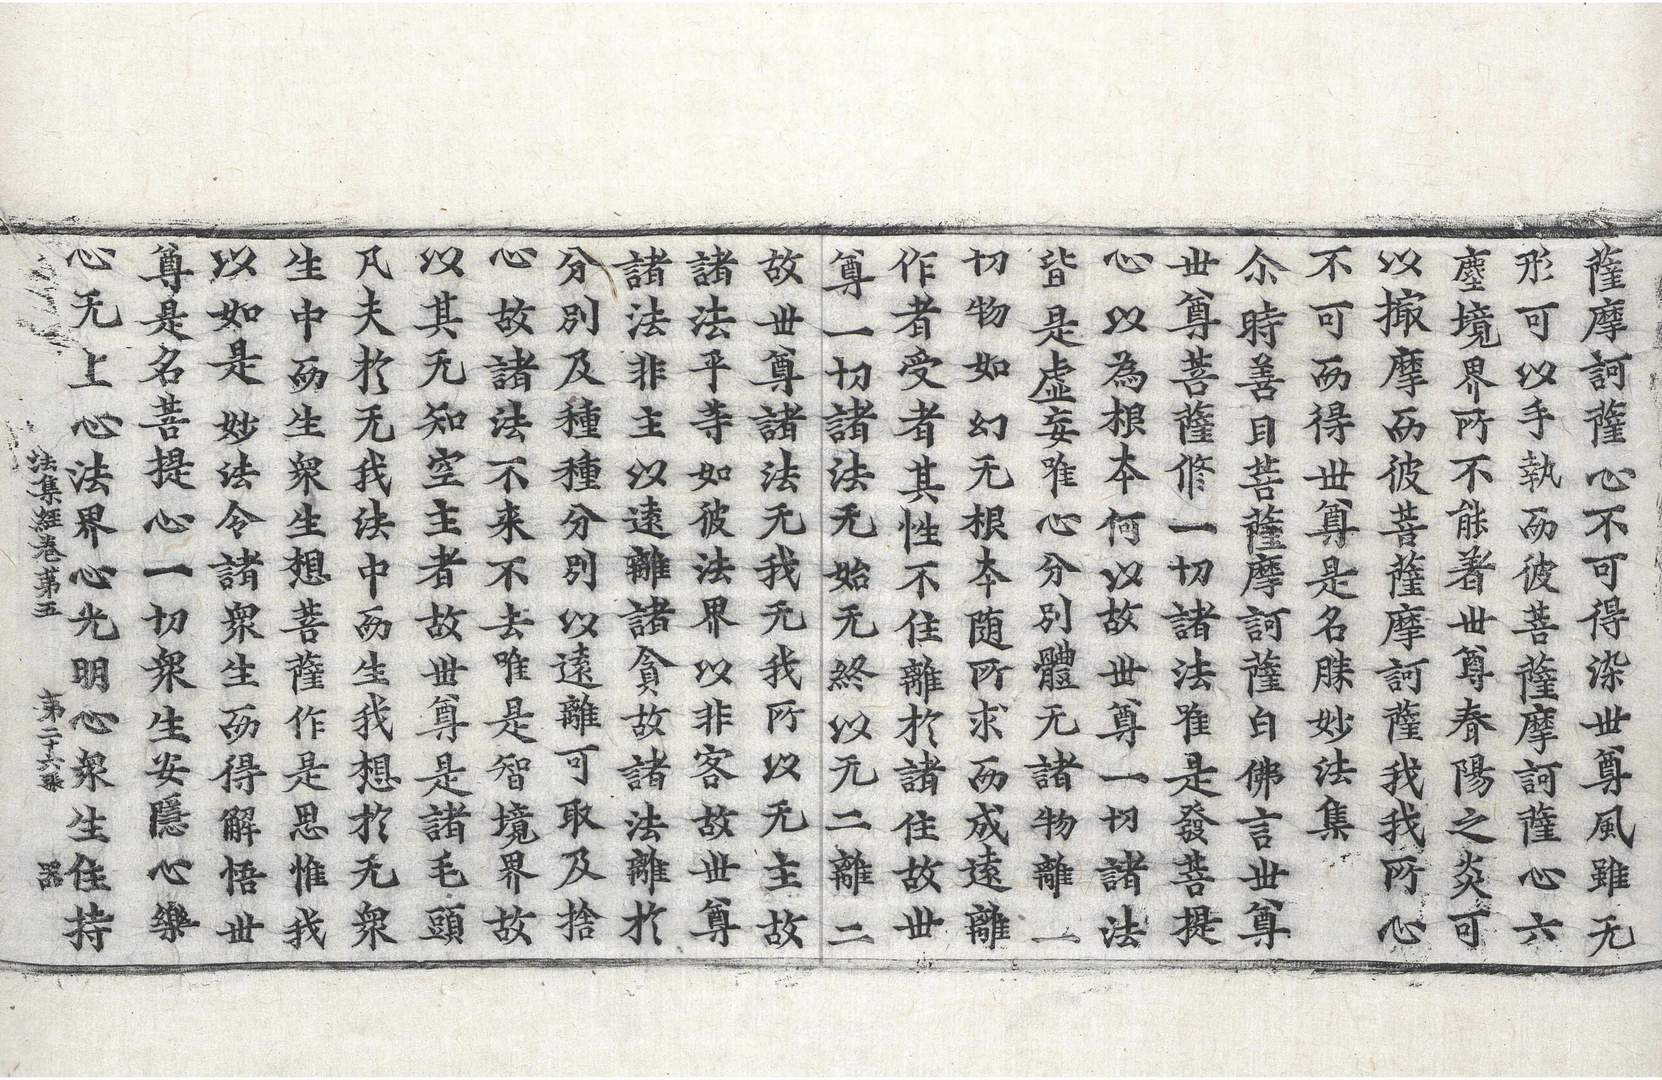 薩摩訶薩心不可得染世尊風雖无
形可以手執而彼菩薩摩訶薩心六
塵境界所不能著世尊春陽之炎可
以撮摩而彼菩薩摩訶薩我我所心
不可而得世尊是名勝妙法集
尒時善目菩薩摩訶薩白佛言世尊
世尊菩薩修一切諸法唯是發菩提
心以為根本何以故世尊一切諸法
皆是虛妄唯心分別體无諸物離一
切物如幻无根本随所求而成遠離
作者受者其性不住離於諸住故世
尊一切諸法无始无終以无二離二
故世尊諸法无我无我所以无主故
諸法平等如彼法界以非客故世尊
諸法非主以遠離諸貪故諸法離於
分別及種種分別以遠離可取及捨
心故諸法不来不去唯是智境界故
以其无知空主者故世尊是諸毛頭
凡夫於无我法中而生我想於无衆
生中而生衆生想菩薩作是思惟我
以如是妙法令諸衆生而得解悟世
尊是名菩提心一切衆生安隱心樂
心无上心法界心光明心衆生住持
法集經卷第五 第二十六張 器